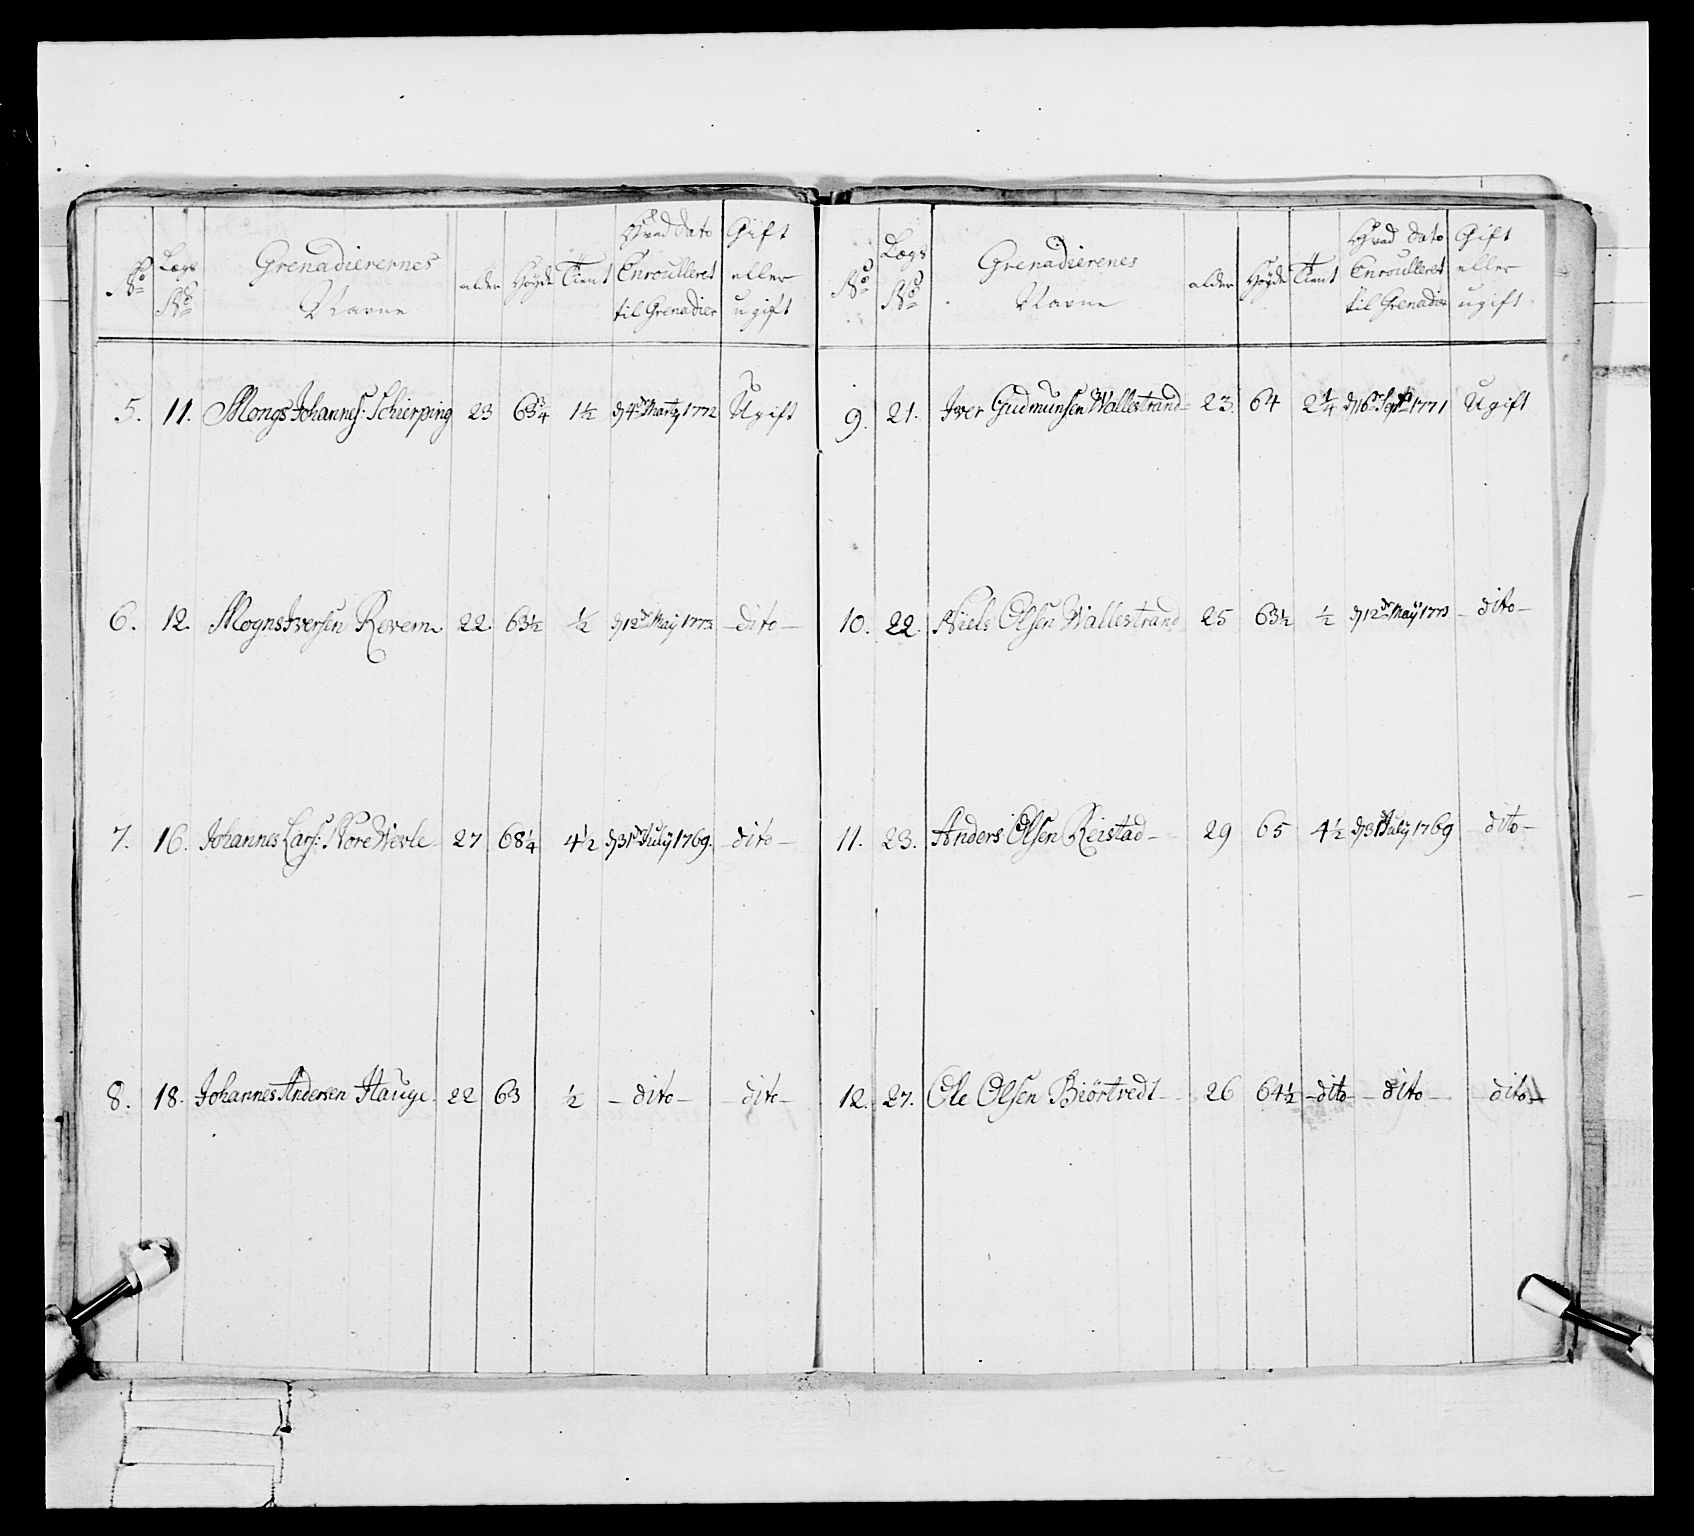 No Lægs No Grenadierernes Navne alder Høyde Tient Hvad Dato Enroulleret til Grenadier Gift eller ugift
5. 11. Mongs Johannes: Schierping 23 63¾ 1½ d 4de Martz 1772 Ugift
6. 12. Mogns Iversen Revem 22 63½ ½ d 12te Maÿ 1773 dito
7. 16. Johannes Lars: Nore Werle 27 68¼ 4½ d 31te July 1769. dito
8. 18. Johannes Andersen Hauge 22 63 ½ dito dito
No Lægs No Grenadierenes Navne alder Høyde Tient Hvad Dato Enroulleret til Grenadier Gift eller ugift
9. 21. Iver Gudmunsen Wallestrand 23 64 2¼ d 16 Sept 1771 Ugift
10. 22. Niels Olsen Wallestrand 25 63½ ½ d 12te Maÿ 1773 dito
11. 23. Anders Olsen Reistad 29 65 4½ d 31 July 1769 dito
12. 27. Ole Olsen Biørtvedt 26 64½ dito dito dito